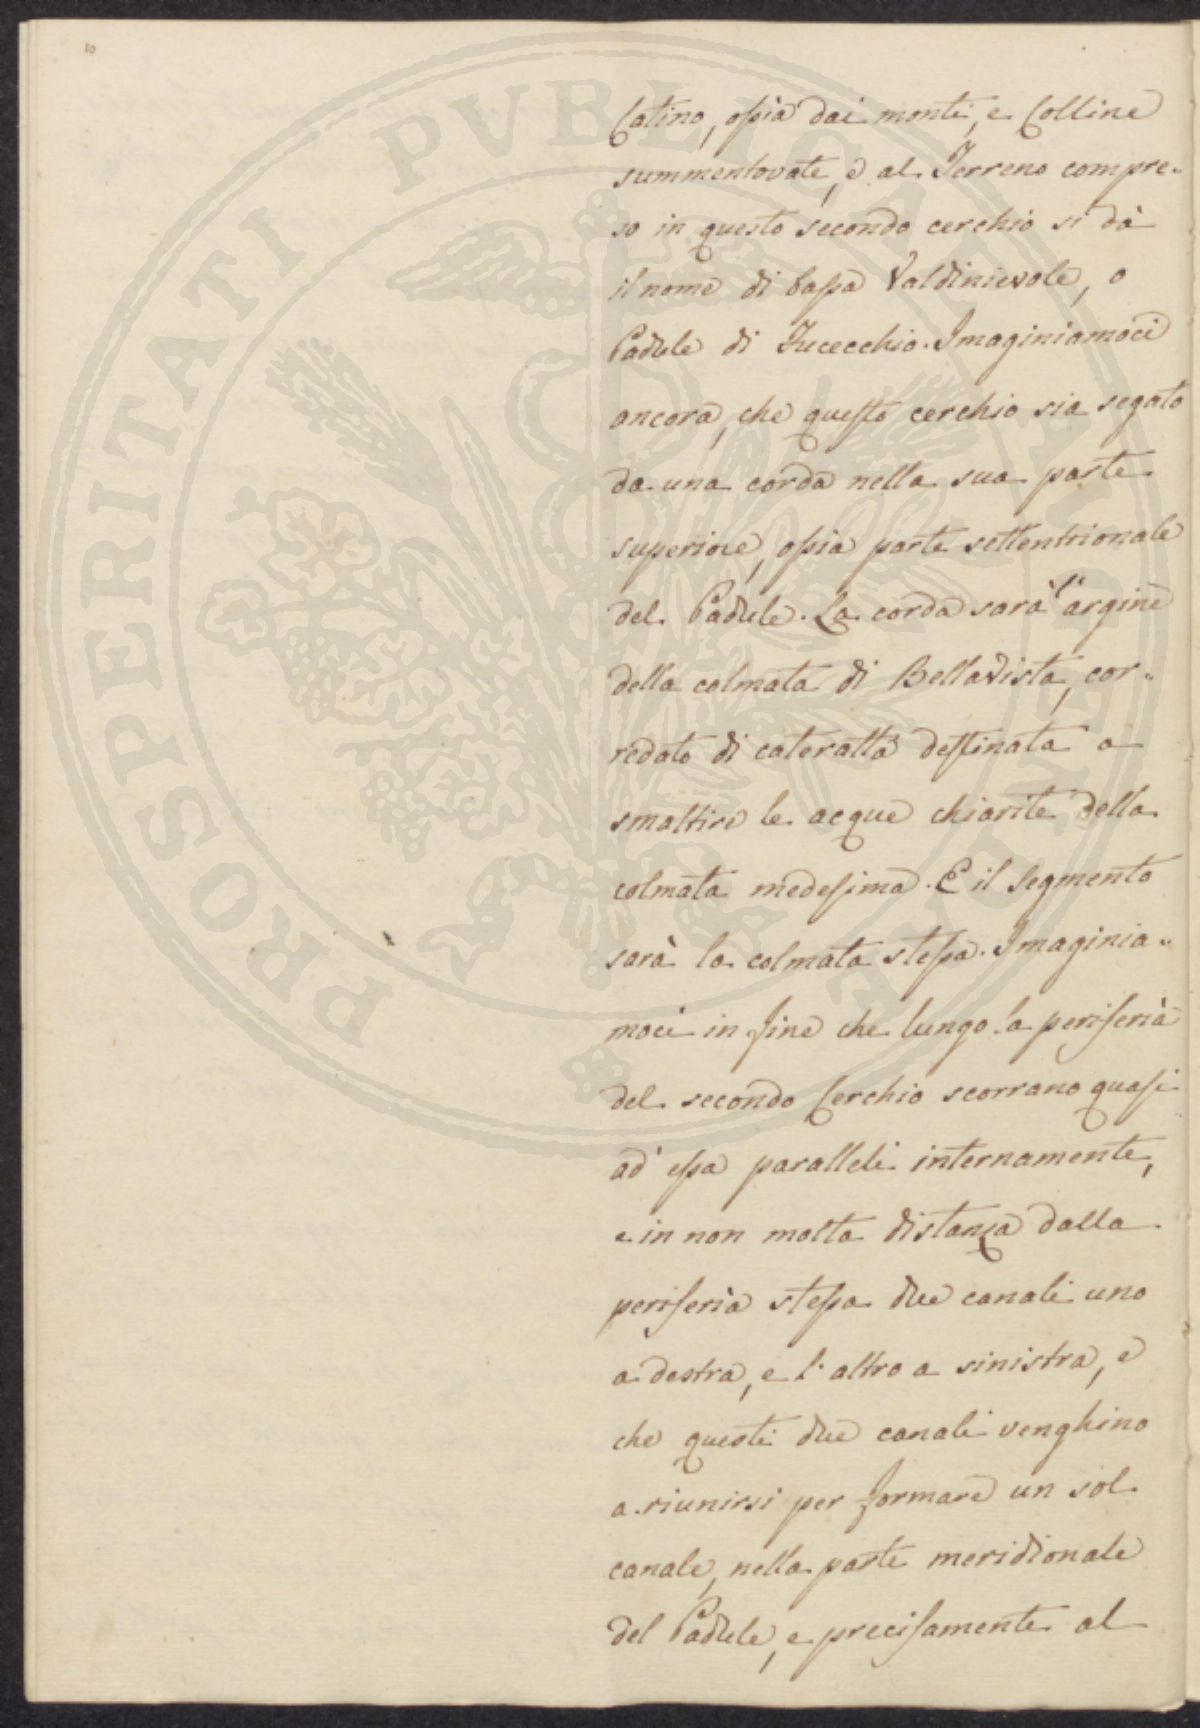 10
Catino, ossia dai monti, e Colline
summentovate, e al Terreno compre„
so in questo secondo cerchio si dà
il nome di bassa Valdinievole, o
Padule di Fucecchio. Imaginiamoci
ancora, che questo cerchio sia segato
da una corda nella sua parte
superiore, ossia parte settentrionale
del Padule. La corda sarà l'argine
della colmata di Bellavista, cor„
redato di cateratta destinata a
smaltire le acque chiarite della
colmata medesima. E il segmento
sarà la colmata stessa. Imaginia„
moci in fine che lungo la periferia
del secondo Cerchio scorrano quasi
ad essa paralleli internamente,
e in non molta distanza dalla
periferia stessa due canali uno
a destra, e l'altro a sinistra, e
che questi due canali venghino
a riunirsi per formare un sol
canale, nella parte meridionale
del Padule, e precisamente al
PROSPERITATI PVBLICAE AVGENDAE